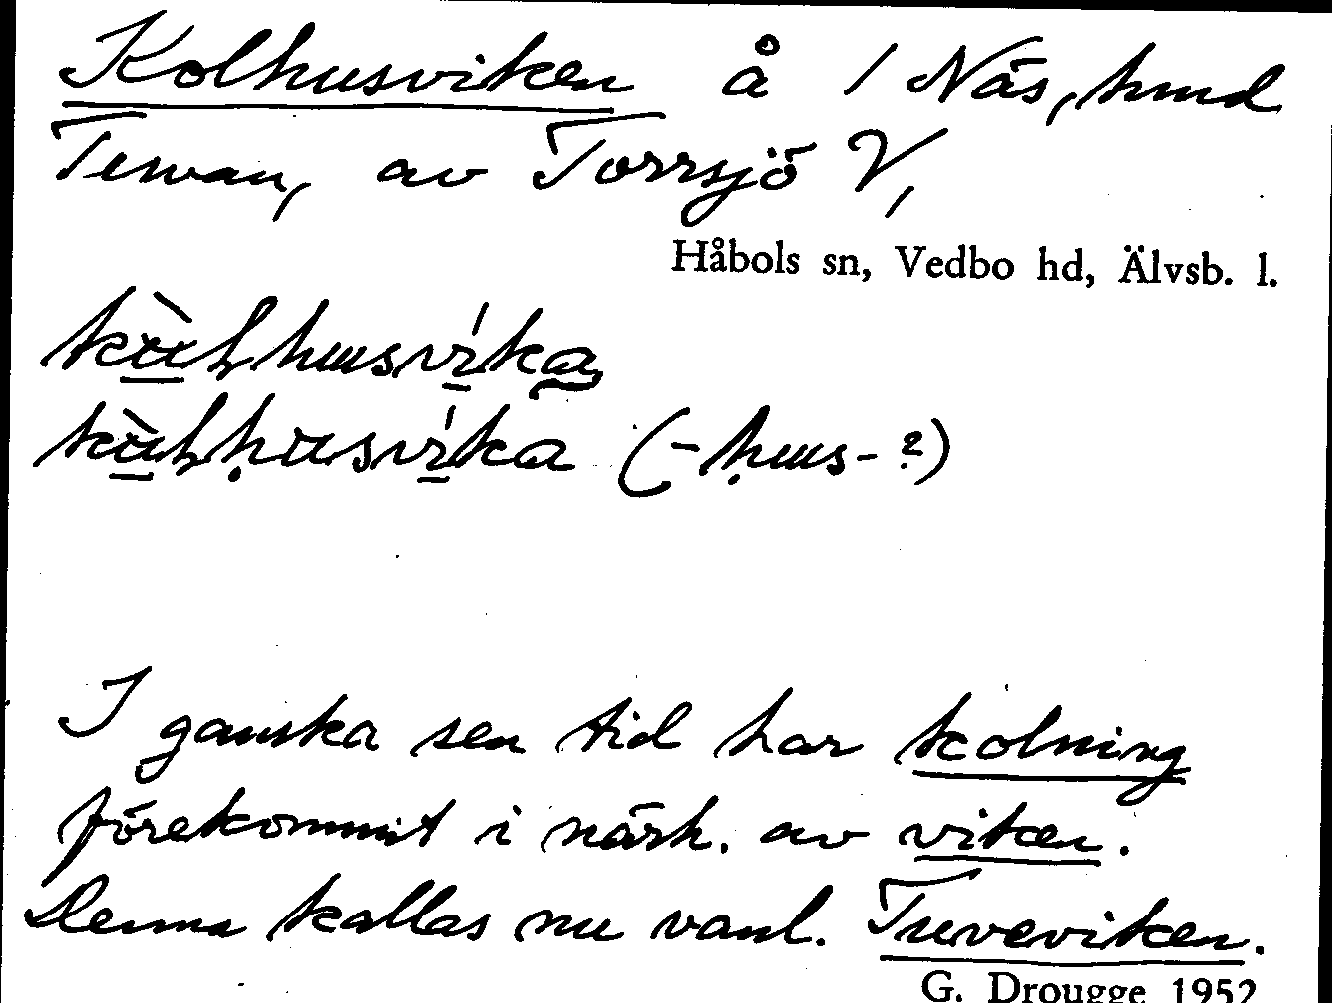 Kolhusviken å 1 Näs, hmd
Teswan, av Torrsjö V,
Håbols sn, Vedbo hd, Älvsb. l.
(-ḥuus-?)
I ganska sen tid har kolning
förekommit i närh. av viken.
Denna kallas nu vanl. Tuveviken.
G. Drougge 1952